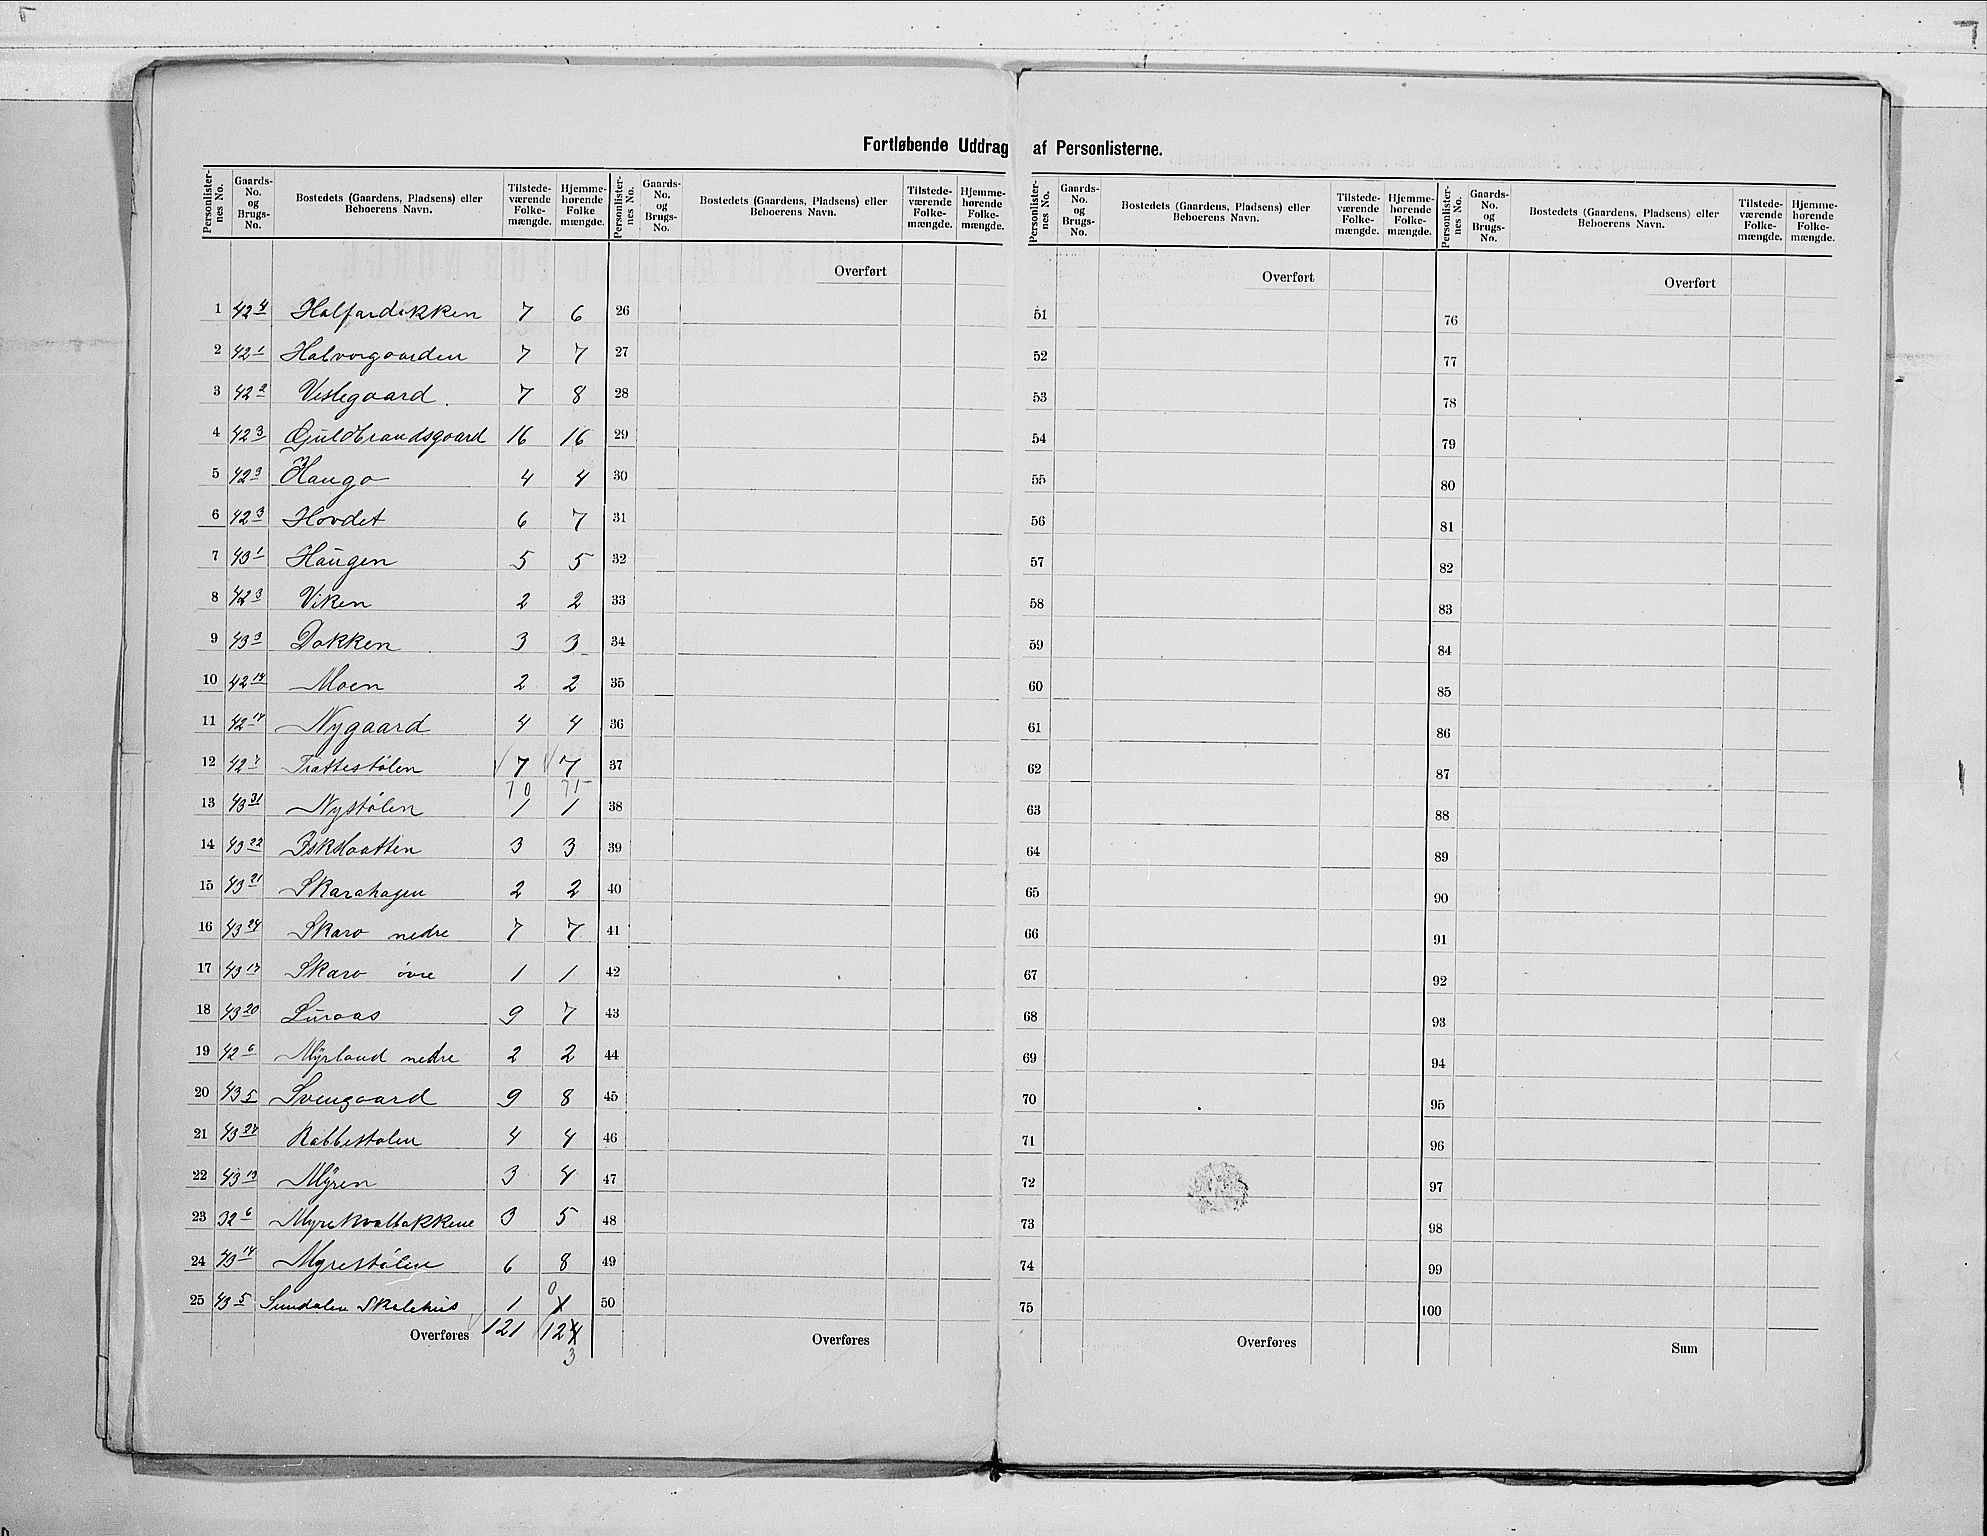 Fortløbende Uddrag af Personlisterne.
Personlister-nes No. Gaards-No. og Brugs-No. Bostedets (Gaardens, Pladsens) eller Beboerens Navn. Tilstede-værende Folke-mængde. Hjemme-hørende Folke mængde. Personlister-nes No. Gaards-No. og Brugs-No. Bostedets (Gaardens, Pladsens) eller Beboerens Navn. Tilstede-værende Folke-mængde. Hjemme-hørende Folke-mængde. Personlister-nes No. Gaards-No. og Brugs-No. Bostedets (Gaardens, Pladsens) eller Beboerens Navn. Tilstede-værende Folke-mængde. Hjemme-hørende Folke-mængde. Personlister-nes No. Gaards-No. og Brugs-No. Bostedets (Gaardens, Pladsens) eller Beboerens Navn. Tilstede-værende Folke-mængde. Hjemme-hørende Folke-mængde.
Overført Overført Overført
1 42 4 Halfardokken 7 6 26 51 76
2 42 1 Halvorgaarden 7 7 27 52 77
3 42 2 Veslegaard 7 8 28 53 78
4 42 3 Guldbrandsgaard 16 16 29 54 79
5 42 3 Haugo 4 4 30 55 80
6 42 3 Hovdet 6 7 31 56 81
7 43 1 Haugen 5 5 32 57 82
8 42 3 Viken 2 2 33 58 83
9 43 3 Dokken 3 3 34 59 84
10 42 14 Moen 2 2 35 60 85
11 42 14 Nygaard 4 4 36 61 86
12 42 7 Trattestølen 7 7 37 62 87
70 71
13 43 31 Nystølen 1 1 38 63 88
14 43 22 3 3 39 64 89
15 43 21 Skarahagen 2 2 40 65 90
16 43 24 Skaro nedre 7 7 41 66 91
17 43 17 Skaro øvre 1 1 42 67 92
18 43 20 Luraas 9 7 43 68 93
19 42 6 Myrland nedre 2 2 44 69 94
20 43 5 Svengaard 9 8 45 70 95
21 43 27 Rabbestølen 4 4 46 71 96
22 43 13 Myren 3 4 47 72 97
23 32 6 Myrekvalbakkene 3 5 48 73 98
24 43 14 Myrestølen 6 8 49 74 99
25 43 5 Sundalen Skolehus 1 0 50 75 100
Overføres 121 124 Overføres Overføres Sum
3